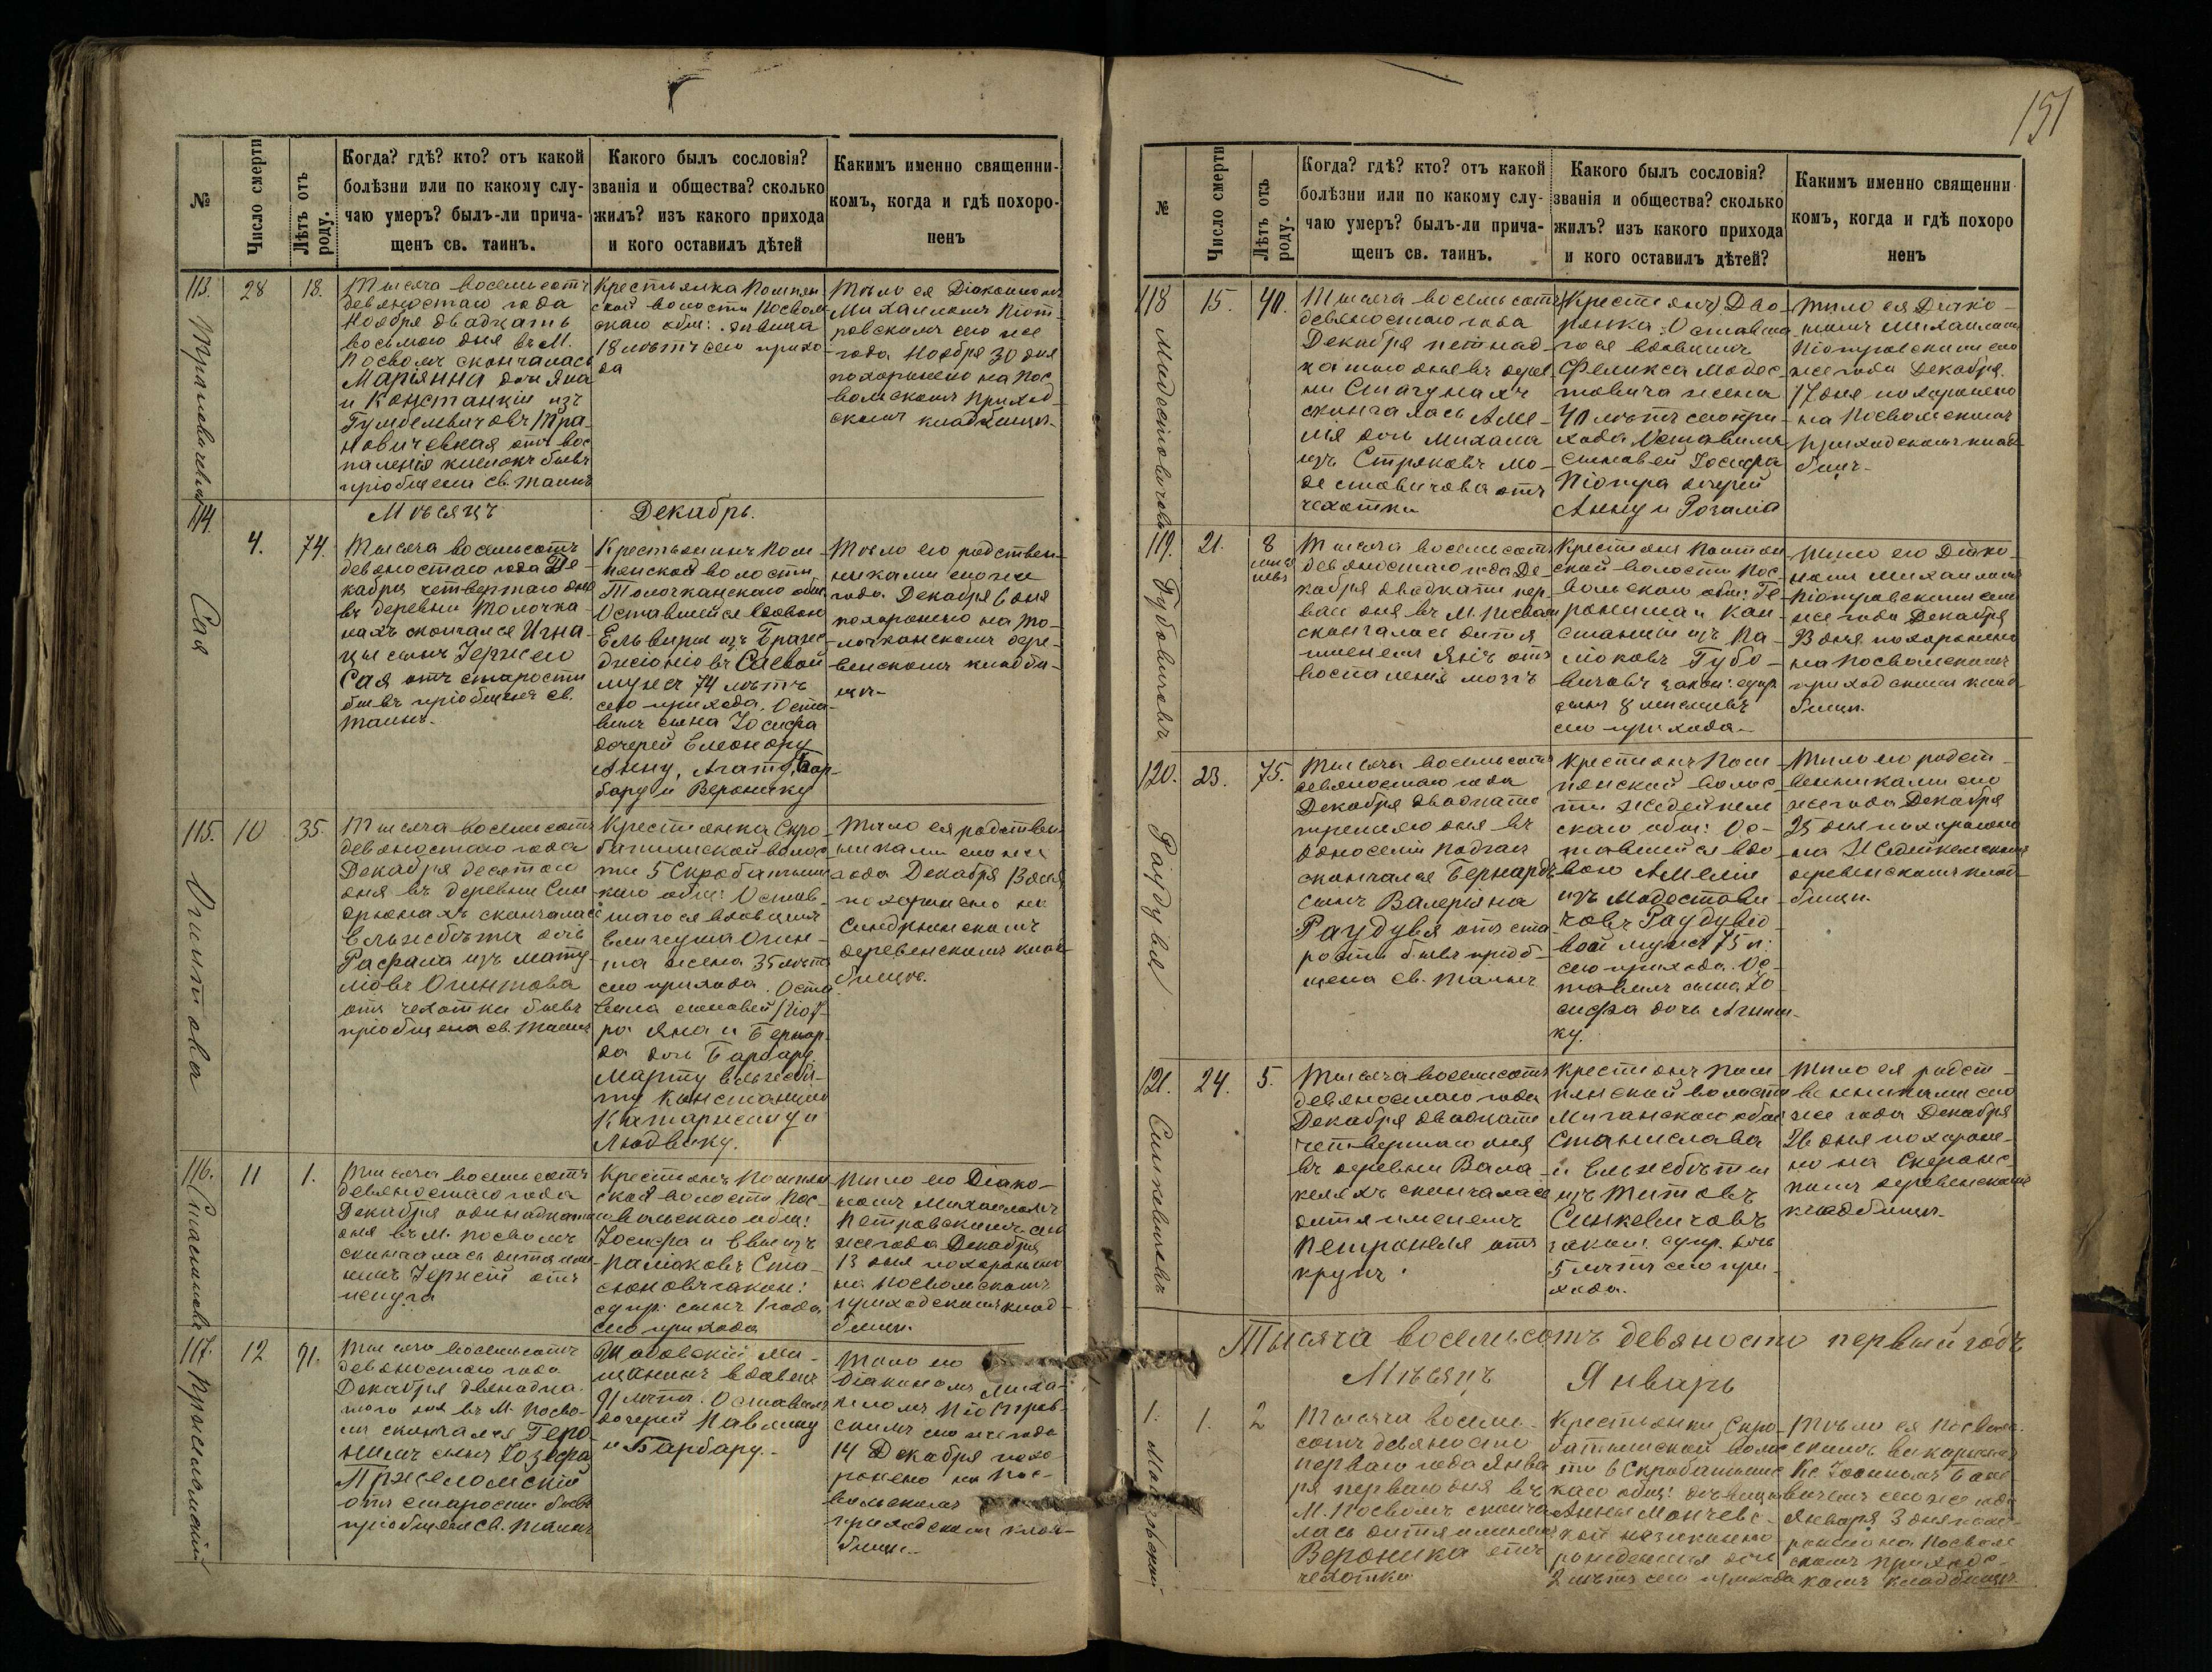 151
№
Число смерти
Лѣтъ отъ роду.
Когда? гдѣ? кто? отъ какой
болѣзни или по какому слу-
чаю умеръ? былъ-ли прича-
щенъ св. таинъ.
Какого былъ сословія?
званія и общества? сколько
жилъ? изъ какого прихода
и кого оставилъ дѣтей
Какимъ именно священни-
комъ, когда и гдѣ похоро-
ненъ
113.
28
18.
Тысяча восемьсотъ
девяностаго года
Ноября двадцать
восьмого дня въ М.
Посволь скончалась
Маріянна дочь Яна
и Констанціи изъ
былъ
пріобщена св. таинъ
Крестьянка Помпян
ской волости Посволь
скаго общ: дѣвица
18 лѣтъ сего прихо
да
Тѣло ея Діакономъ
Михаиломъ Піот-
ровскимъ сего же
года Ноября 30 дня
похоронено на Пос
вольскомъ приход
скомъ кладбищѣ.
114
Мѣсяцъ
Декабрь.
4.
74.
Сая
Тысяча восемьсотъ
девяностаго года Де
кабря четвертаго дня
въ деревни Толочка
нахъ скончался Игна
цы сынъ Іержего
Сая отъ старости
бывъ пріобщенъ св.
таинъ.
Крестьянинъ Пом
пянской волости
Толочканскаго общ
Оставшейся вдовою
Ельвиры изъ
Саевой
мужъ 74 лѣтъ
сего прихода. Оста-
вилъ сына Іосифа
дочерей Елеонору
Анну, Агату, Бар-
бару и Веронику
Тѣло его родствен-
никами сего же
года Декабря 6 дня
похоронено на То-
лочканскомъ дере-
венскомъ кладби-
щѣ.
115.
10
35.
Огинтова
Тысяча восемьсотъ
девяностаго года
Декабря десятаго
дня въ деревни Син
дрюнахъ скончалась
Ельжбѣта дочь
Рафала изъ Мату
ліовъ Огинтова
отъ чехотки бывъ
пріобщена св. таинъ
Крестьянка Скро-
батишской волос
ти 5 Скробатиш
каго общ: Остав-
шагося вдовцемъ
Огин-
та жена 35 лѣтъ
сего прихода. Оста
вила сыновей Піот-
ра Яна и Бернар-
да дочь Барбару
Марту Ельжбѣ-
ту Констанцію
Катаржину и
Людвику.
Тѣло ея родствен
никами сего же
года Декабря 13 дня
похоронено на
Синдрюнскомъ
деревенскомъ клад
бищѣ.
116.
11
1.
Тысяча восемьсотъ
девяностаго года
Декабря одинадцатаго
дня въ М. Посволь
скончалась дитя име
немъ Іержій отъ
Крестьянъ Помпян
ской волости Пос
вольскаго общ:
Іосифа и Евы изъ
закон:
супр: сынъ 1 года
сего прихода
Тѣло его Діако-
номъ Михаиломъ
Петровскимъ сего
же года Декабря
13 дня похоронено
на Посвольскомъ
приходскомъ клад-
бищѣ.
117.
12
91.
Пржеломскій
Тысяча восемьсотъ
девяностаго года
Декабря двенадца
таго дня въ М. Посво-
ль скончался Геро
нимъ сынъ Іозефа
Пржеломскій
отъ старости бывъ
пріобщенъ св. таинъ
мѣ-
щанинъ вдовецъ
91 лѣтъ. Оставилъ
дочерей Павлину
и Барбару.
Тѣло его
Діакономъ Миха-
иломъ Піотров-
скимъ сего же года
14 Декабря похо
ронено на Пос-
вольскомъ
приходскомъ клад-
бищѣ.
№
Число смерти
Лѣтъ отъ роду.
Когда? гдѣ? кто? отъ какой
болѣзни или по какому слу-
чаю умеръ? былъ-ли прича-
щенъ св. таинъ.
Какого былъ сословія?
званія и общества? сколько
жилъ? изъ какого прихода
и кого оставилъ дѣтей?
Какимъ именно священни
комъ, когда и гдѣ похоро
ненъ
118
15.
40.
Модостовичова
Тысяча восемьсотъ
девяностаго года
Декабря петнад-
цатаго дня въ дерев
ни Стагунахъ
скончалась Аме-
лія дочь Михала
изъ Стряковъ Мо-
достовичова отъ
чехотки
(Крестьянъ) Дво-
рянка. Оставша
гося вдовцемъ
Феликса Модос-
товича жена
40 лѣтъ сего при
хода. Оставила
сыновей Іосифа
Піотра дочерей
Анну и Розалію
Тѣло ея Діако-
номъ Михаиломъ
Піотровскимъ сего
же года Декабря
17 дня похоронено
на Посвольскомъ
приходскомъ клад
бищѣ.
119.
21.
8
Губовичовъ
Тысяча восемьсотъ
девяностаго года Де-
кабря двадцать пер
ваго дня въ М. Посволь
скончалась дитя
именемъ Янъ отъ
воспаленія мозгъ
Крестьянъ Помпян
ской волости Пос-
вольскаго общ: Ге-
ронима и Кон
станціи изъ Па-
ліоковъ Губо-
вичовъ закон: супр.
сынъ 8 месяцевъ
сего прихода.
Тѣло его Діако-
номъ Михаиломъ
Піотровскимъ сего
же года Декабря
23 дня похоронено
на Посвольскомъ
приходскомъ клад
бищѣ.
120.
23.
75.
Раудувя
Тысяча восемьсотъ
девяностаго года
Декабря двадцать
третьяго дня въ
односели
скончался Бернардъ
сынъ Валеріяна
Раудувя отъ ста
рости бывъ пріоб-
щена св. таинъ
Крестьянъ Пом
пянской волос-
ти
скаго общ: Ос-
тавшейся вдо
вою Амеліи
изъ Модостови
човъ Раудувіо
вой мужъ 75 л:
сего прихода. Ос-
тавилъ сына Іо-
сифа дочь
ку.
Тѣло его родст-
венниками сего
же года Декабря
25 дня похоронено
на
деревенскомъ клад-
бищѣ.
121.
24.
5.
Синкевичовъ
Тысяча восемьсотъ
девяностаго года
Декабря двадцать
четвертаго дня
въ деревни Вала
келяхъ скончалась
дитя именемъ
Петронеля отъ
крупъ.
Крестьянъ Пом
пянской волости
общ
Станислава
и Ельжбѣты
изъ Титовъ
Синкевичовъ
закон: супр. дочь
5 лѣтъ сего при
хода.
Тѣло ея родст-
венниками сего
же года Декабря
26 дня похороне-
но на
деревенскомъ
кладбищѣ.
Тысяча восемьсотъ девяносто первый годъ
Мѣсяцъ
Январь
1.
1.
2
Тысяча восемь-
сотъ девяносто
перваго года Янва
ря перваго дня въ
М. Посволь сконча
лась дитя именемъ
Вероника отъ
чехотки
Крестьянки Скро-
батишской волос
ти 6 Скробатишс
каго общ: дѣвицы
Анны
кой незаконно
рожденная дочь
2 лѣтъ сего прихода
Тѣло ея Посволь-
скимъ
сего же года
Января 3 дня похо
ронено на Посволь
скомъ приходс-
комъ кладбищѣ.